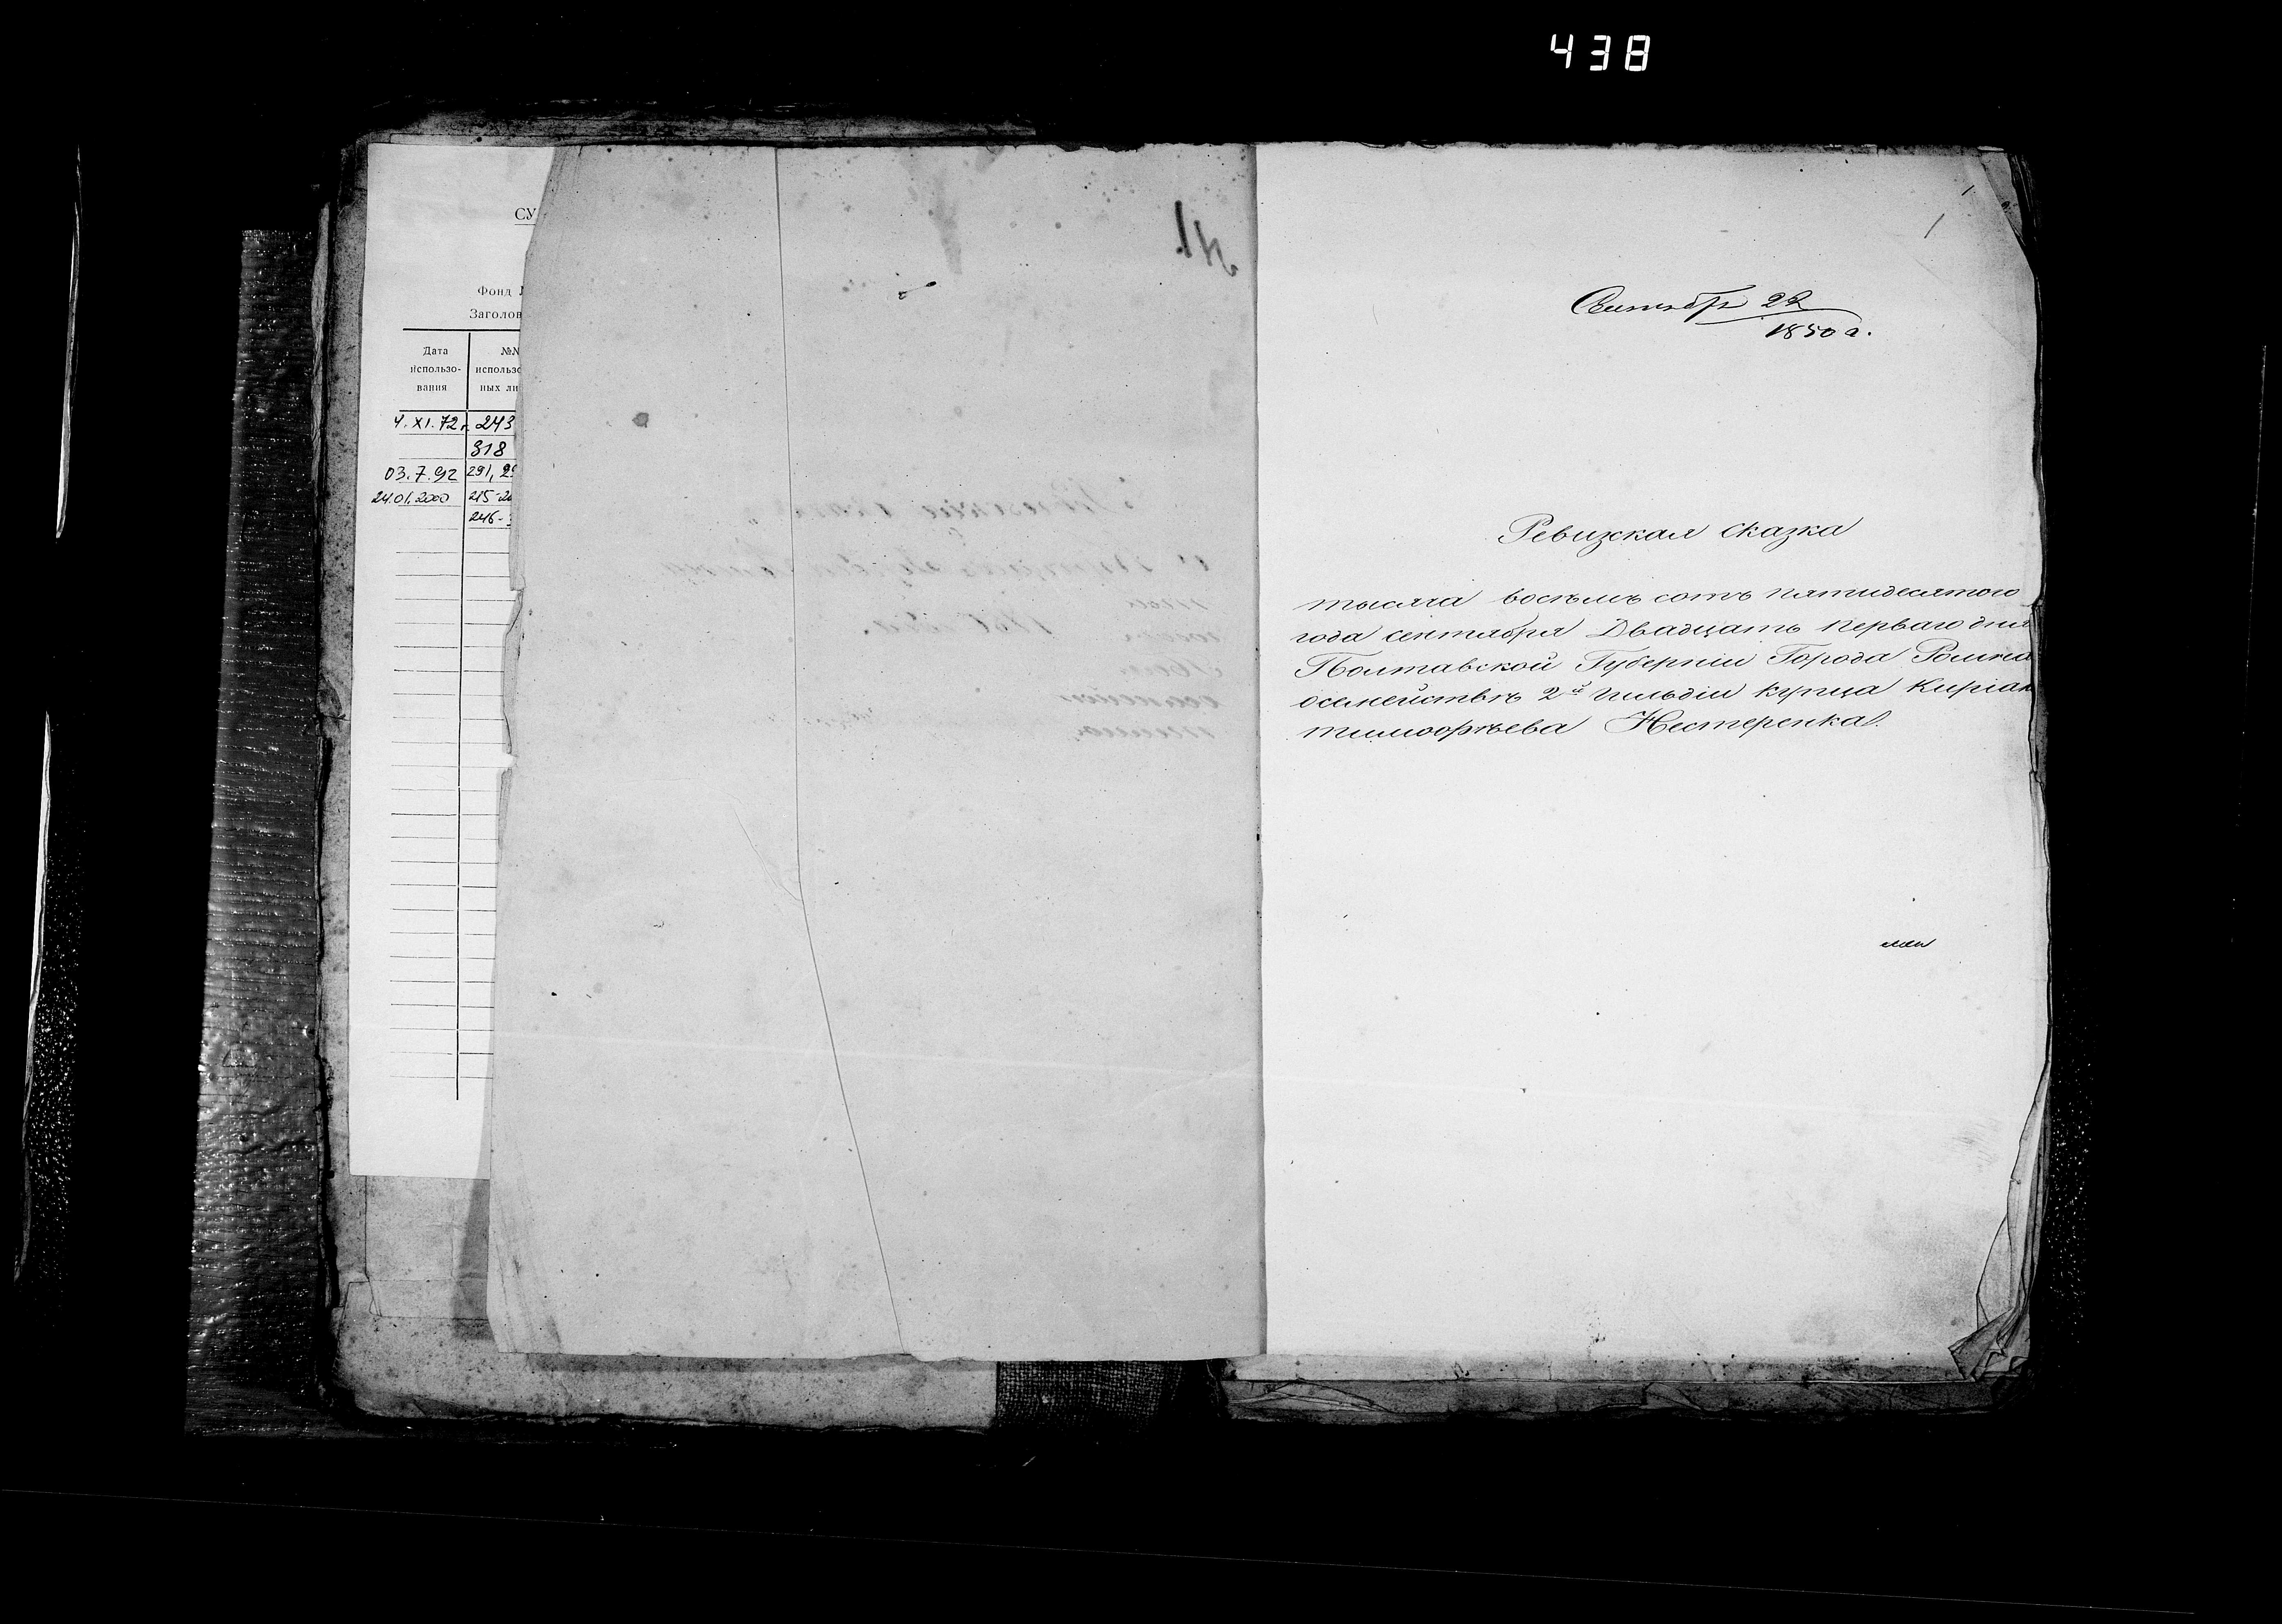 438
СУ
Фонд
Заголов
Дата использо- вания
№№ использо ных ли
4.XI.72г. 243
318
03.7.92 291, 29
24.01.2000 215-2
246-
1
1
Сентябрь 22
1850 г.
Ревизская сказка
тысяча восѣмь сотъ пятидесятого
года сентября Двадцать перваго дня
Полтавской Губерніи Города Ромна
осемействѣ 2й Гильдіи купца Киріак
тимофѣева Нестеренка.